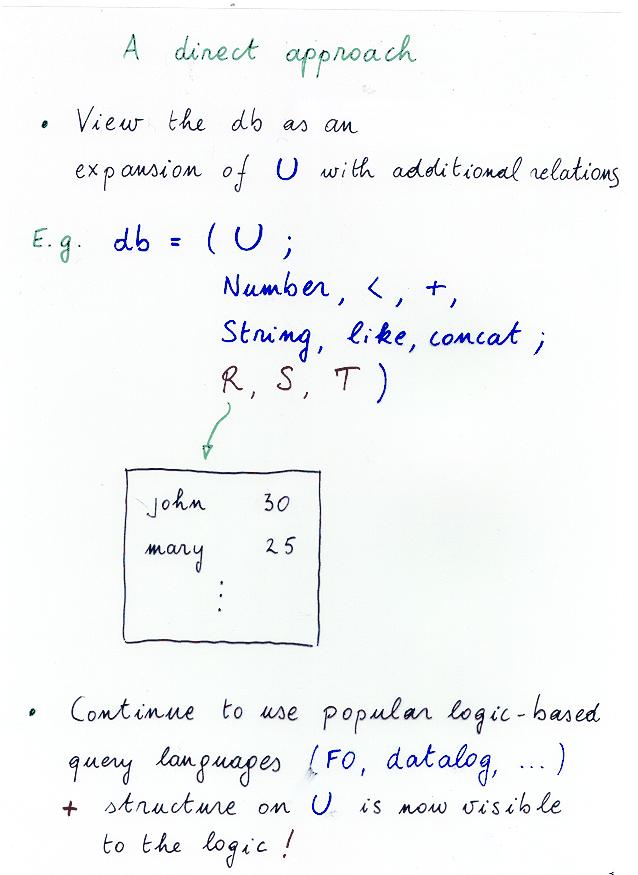 A direct approach
• View the db as an
expansion of U with additional relations
E.g. db = ( U ;
Number, <, +,
String, like, concat ;
R, S, T )
john 30
mary 25
⋮
• Continue to use popular logic-based
query languages (FO, datalog, ...)
+ structure on U is now visible
to the logic !